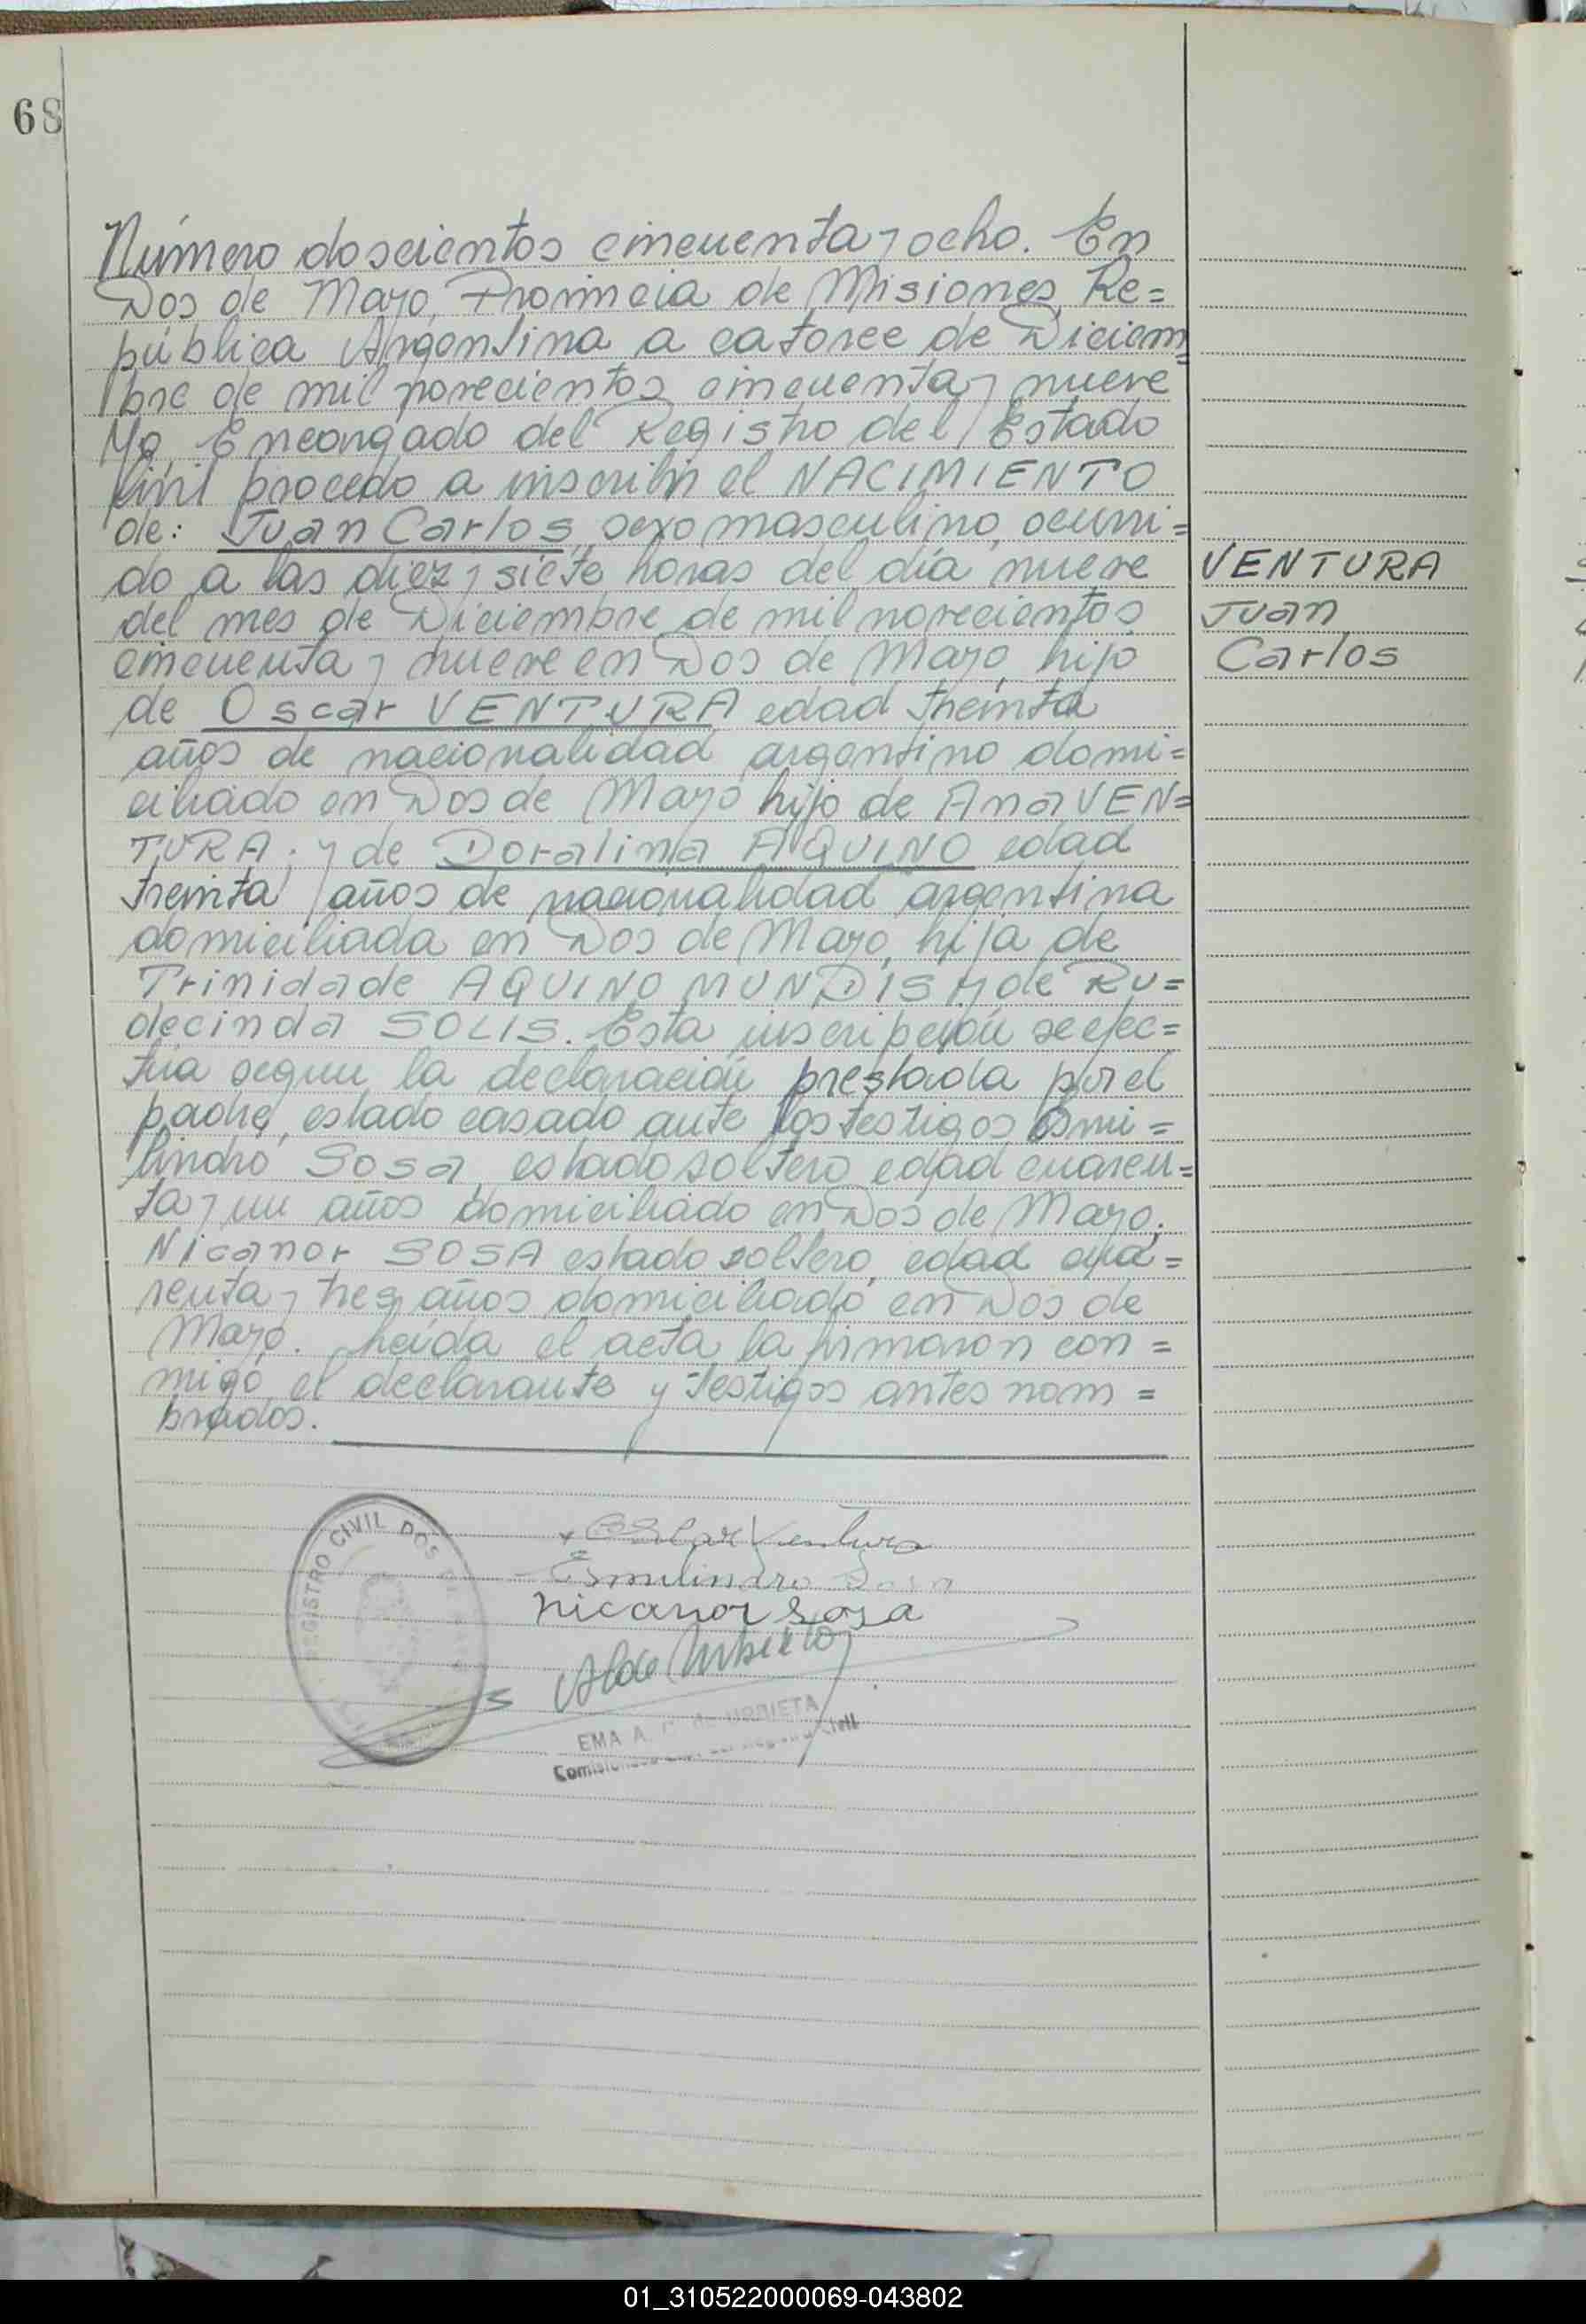 68
Número doscientos cincuenta y ocho. En
Dos de Mayo, Provincia de Misiones, Re=
pública Argentina a catorce de Diciem=
bre de mil novecientos cincuenta y nueve
Yo, Encargado del Registro del Estado
Civil procedo a inscribir el NACIMIENTO
de: Juan Carlos, sexo masculino, ocurri=
do a las diez y siete horas del día nueve
del mes de Diciembre de mil novecientos
cincuenta y nueve en Dos de Mayo, hijo
de Oscar VENTURA edad treinta
años de nacionalidad argentino domi=
ciliado en Dos de Mayo hijo de Ana VEN=
TURA; y de Doralina AQUINO edad
treinta años de nacionalidad argentina
domiciliada en Dos de Mayo, hija de
Trinidade AQUINO MUNDIS y de RU=
decinda SOLIS. Esta inscripción se efec=
túa segun la declaración prestada por el
padre, estado casado ante los testigos Esmi=
lindro Sosa, estado soltero, edad cuaren=
ta y un años domiciliado en Dos de Mayo;
Nicanor SOSA estado soltero, edad cua=
renta y tres años domiciliado en Dos de
Mayo. Leída el acta la firmaron con=
migo, el declarante y testigos antes nom=
brados.
VENTURA
Juan
Carlos
Oscar Ventura
Esmilindro Sosa
nicanor Sosa
REGISTRO CIVIL DOS
EMA A. de URBIETA
Civil
01_310522000069-043802